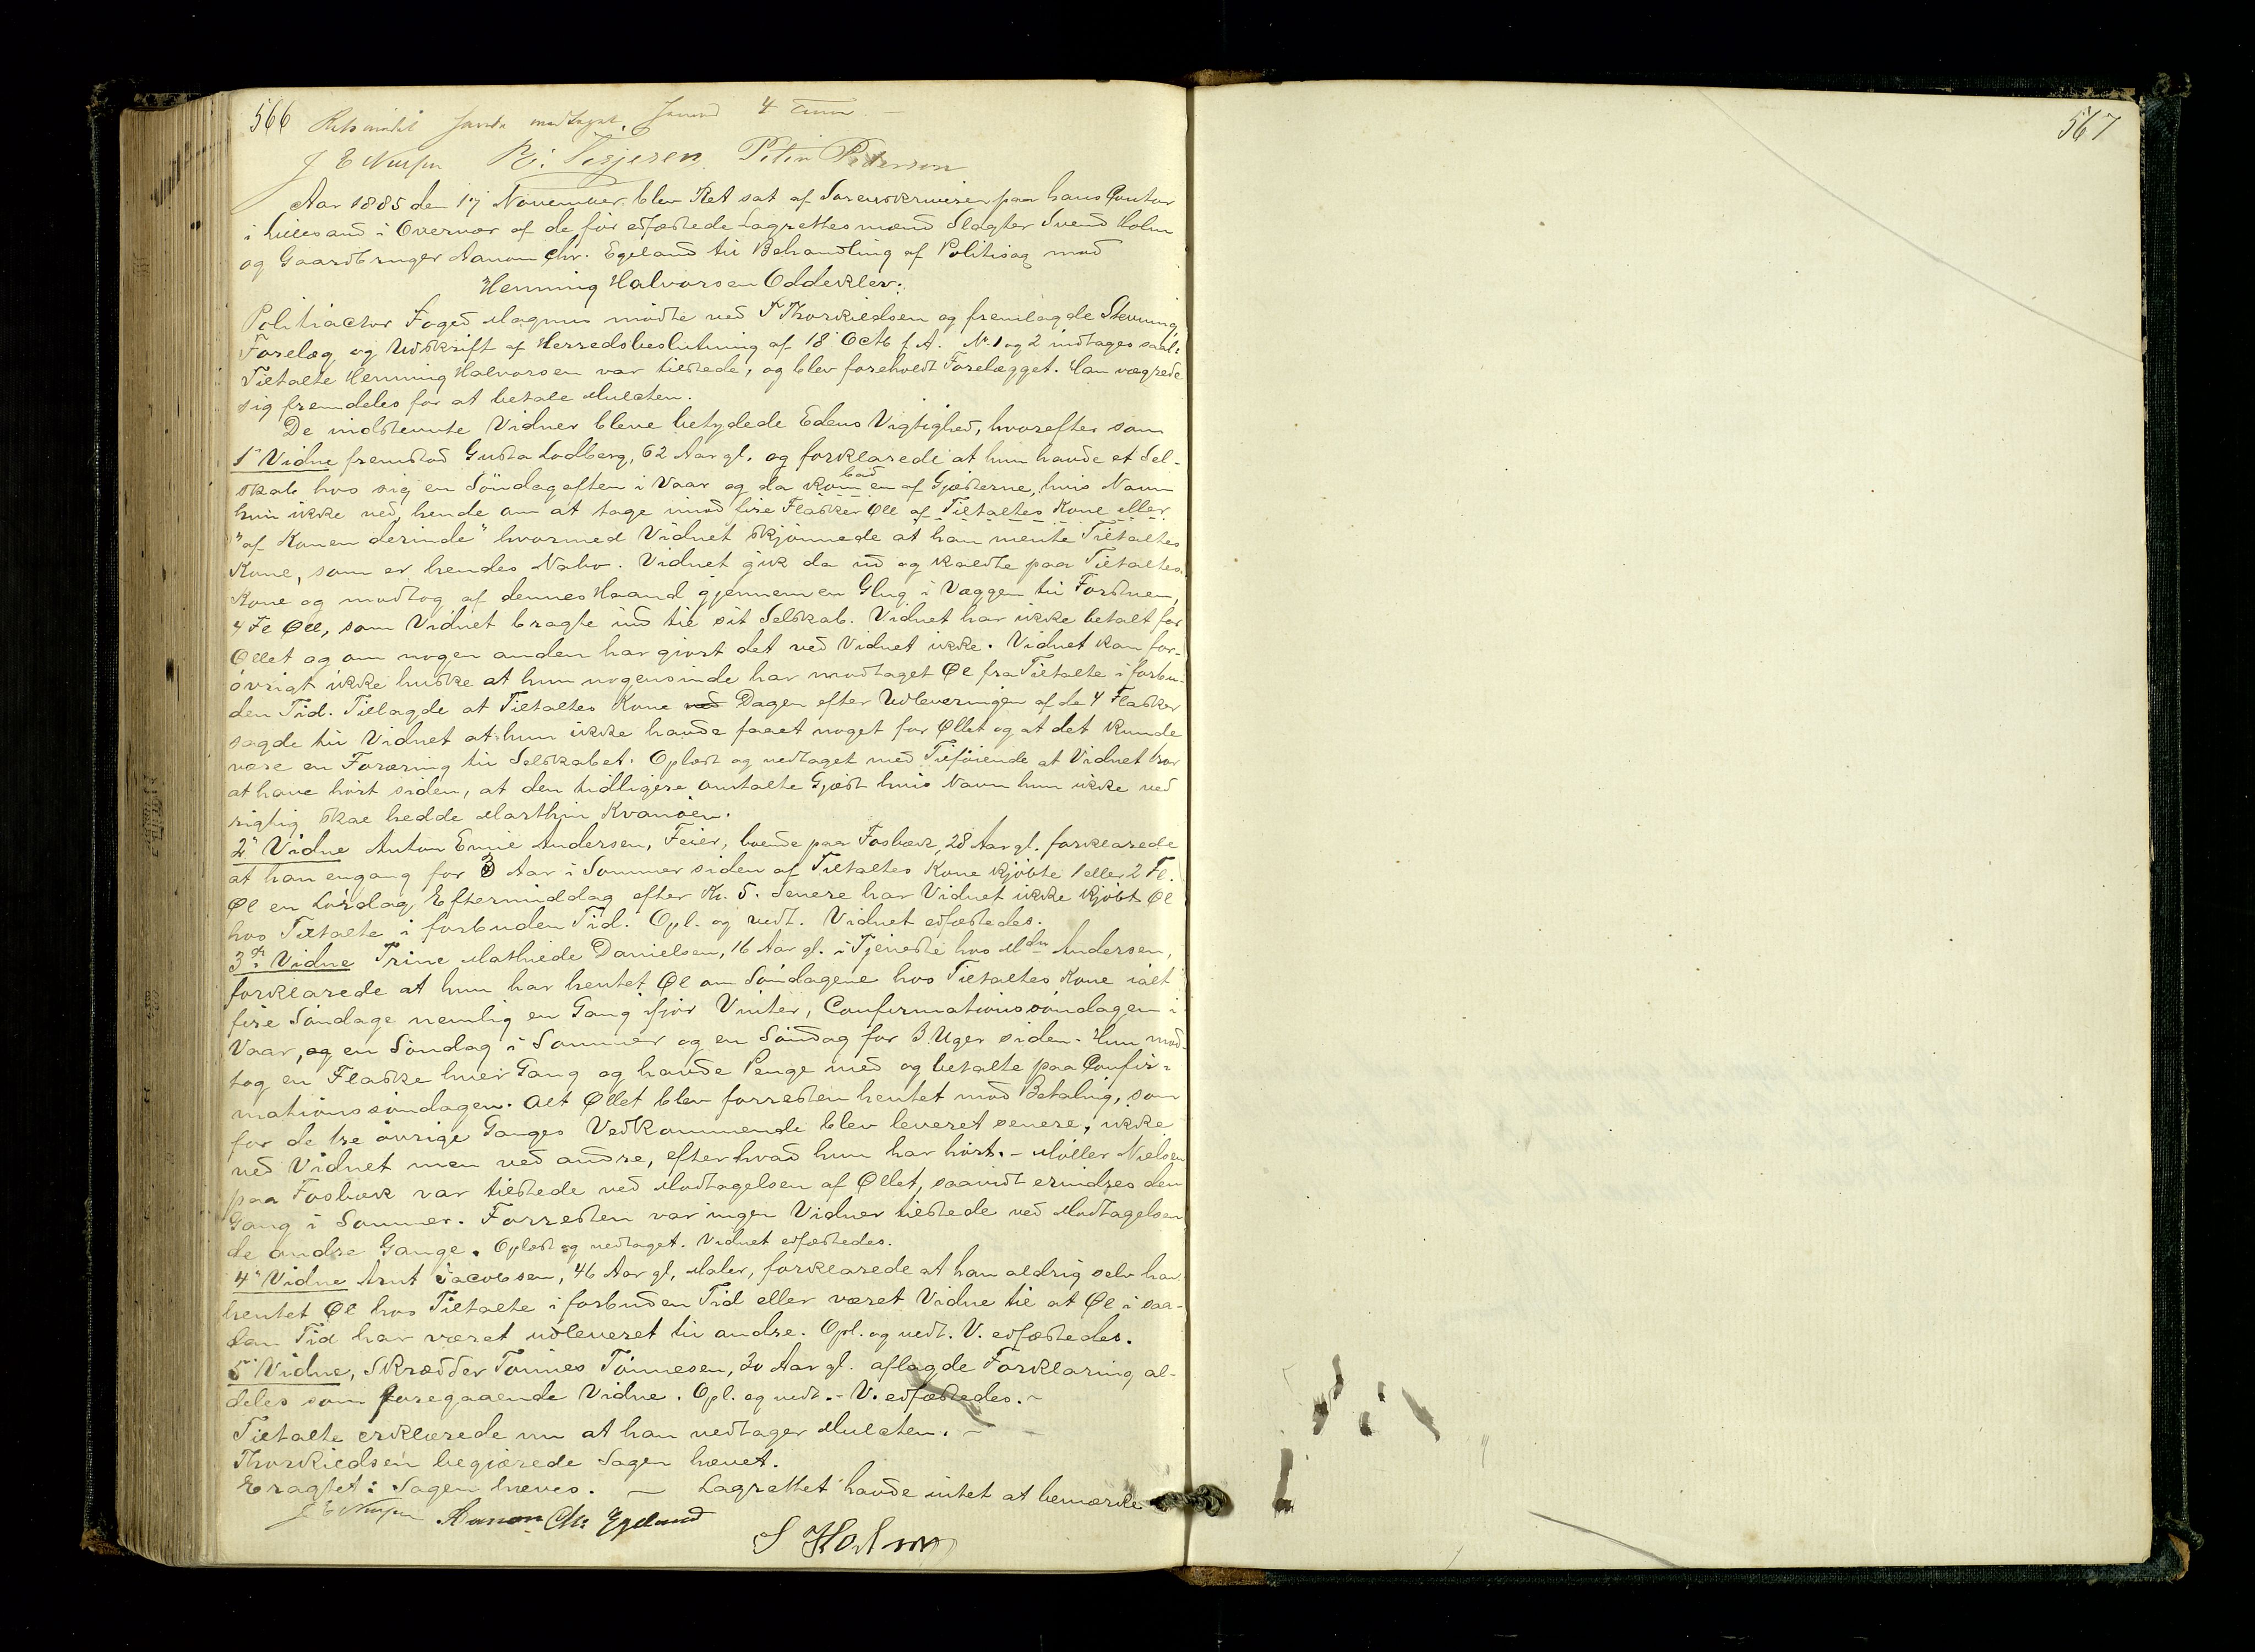 566
567
J E Nielsen Tesjesen. Peter Pederson
Aar 1885 den 17 November blev Ret sat af Sorenskriveren paa hans Contor
i Lillesand i Overvær af de før edfæstede Lagrettesmænd Slagter Svend Holm
og Gaardbruger Aanon Chr. Egeland til Behandling af Politisag mod
Henning Halvorsen Oddeklev:
Politiactor Foged Magnus mødte ved T Thorkildsen og fremlagde Stevning,
Forelæg og Udskrift af Herredsbeslutning af 18 Octb f. A. No 1 og 2 indtages saal:
Tiltalte Henning Halvorsen var tilstede, og blev foreholdt Forelægget. Han vægrede
sig fremdeles for at betale Mulcten.
De indstevnte Vidner bleve betydede Edens Vigtighed, hvorefter som
1' Vidne fremstod Gusta Lodberg, 62 Aar gl. og forklarede at hun havde et Sel-
skab hos sig en Söndagaften i Vaar og da kom bad en af Gjæsterne, hvis Navn
hun ikke ved, hende om at tage imod fire Flasker Øll af Tiltaltes Kone eller
"af Konen derinde" hvormed Vidnet skjönnede at han mente Tiltaltes
Kone, som er hendes Nabo. Vidnet gik da ud og kaldte paa Tiltaltes
Kone og modtog af dennes Haand gjennem en Glug i Væggen til Forstuen,
4 Fl Øll, som Vidnet bragte ind til sit Selskab. Vidnet har ikke betalt for
Øllet og om nogen anden har gjort det ved Vidnet ikke. Vidnet kan for-
övrigt ikke huske at hun nogensinde har modtaget Øl fra Tiltalte i forbu-
den Tid. Tillagde at Tiltaltes Kone ved Dagen efter Udleveringen af de 4 Flasker
sagde til Vidnet at hun ikke havde faaet noget for Øllet og at det kunde
være en Foræring til Selskabet. Oplæst og vedtaget med Tilföiende at Vidnet tror
at have hört siden, at den tidligere omtalte Gjæst hvis Navn hun ikke ved
rigtig skal hedde Marthin Kvanöen.
2' Vidne Anton Emil Andersen, Feier, boende paa Fosbæk, 28 Aar gl. forklarede
at han engang for 3 Aar i Sommer siden af Tiltaltes Kone kjöbte 1 eller 2 Fl.
Øl en Lördag Eftermiddag efter Kl. 5. Senere har Vidnet ikke kjöbt Øl
hos Tiltalte i forbuden Tid. Opl. og vedt. Vidnet edfæstedes.
3die Vidne Trine Mathilde Danielsen, 16 Aar gl. i Tjeneste hos Mdm Andersen,
forklarede at hun har hentet Øl om Söndagene hos Tiltaltes Kone ialt
fire Söndage nemlig en Gang ifjor Vinter, Confirmationssöndagen i
Vaar, og en Söndag i Sommer og en Söndag for 3 Uger siden. Hun mod-
tog en Flaske hver Gang og havde Penge med og betalte paa Confir-
mationssöndagen. Alt Øllet blev forresten hentet mod Betaling, som
for de tre övrige Ganges Vedkommende blev leveret senere, ikke
ved Vidnet men ved andre, efter hvad hun har hört. - Möller Nielsen
paa Fosbæk var tilstede ved Modtagelsen af Øllet, saavidt erindres den
Gang i Sommer. Forresten var ingen Vidner tilstede ved Modtagelsen
de andre Gange. Oplæst og vedtaget. Vidnet edfæstedes.
4' Vidne Arnt Jacobsen, 46 Aar gl, Maler, forklarede at han aldrig selv har
hentet Øl hos Tiltalte i forbuden Tid eller været Vidne til at Øl i saa-
dan Tid har været udleveret til andre. Opl. og vedt. V. edfæstedes.
5' Vidne, Skrædder Tönnes Tönnesen, 30 Aar gl. aflagde Forklaring al-
deles som foregaaende Vidne. Opl. og vedt. - V. edfæstedes. -
Tiltalte erklærede nu at han vedtager Mulcten. -
Thorkildsen begjærede Sagen hævet.
Eragtet: Sagen hæves. - Lagrettet havde intet at bemærke
J E Nielsen Aanon Chr Egeland
S Holm